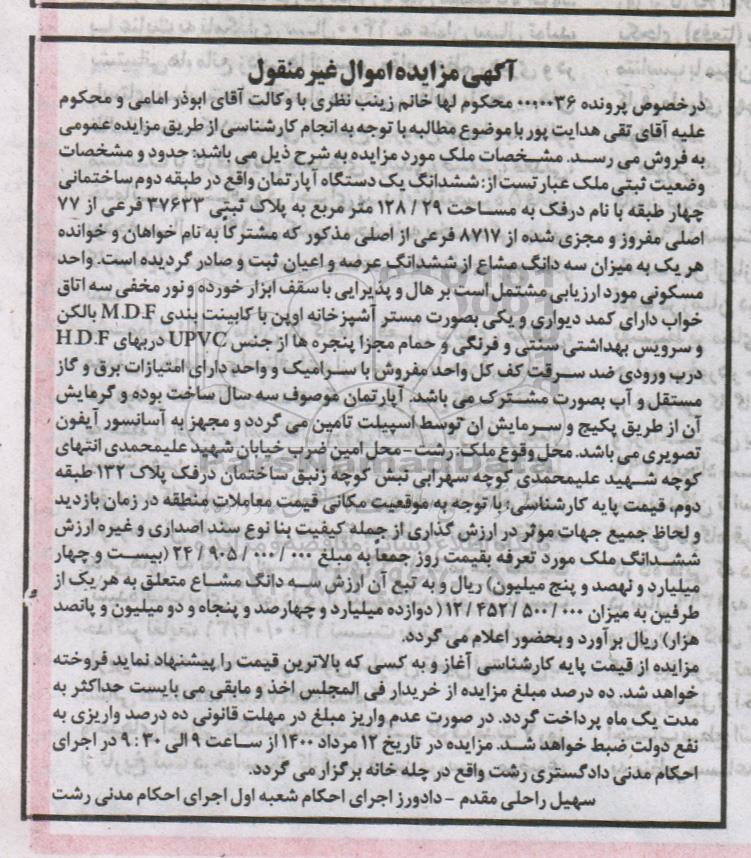 آگهی مزایده اموال غیر منقول
درخصوص پرونده ۰۰۰۰۰۳۶ محکوم لها خانم زینب نظری با وکالت آقای ابوذر امامی و محکوم
علیه آقای تقی هدایت پور با موضوع مطالبه با توجه به انجام کارشناسی از طریق مزایده عمومی
به فروش می رسد. مشـخصات ملک مورد مزایده به شرح ذیل می باشد: حدود و مشخصات
وضعیت ثبتی ملک عبارتست از: ششدانگ یک دستگاه آپارتمان واقع در طبقه دوم ساختمانی
چهار طبقه با نام درفک به مساحت ۲۹ / ۱۲۸ متر مربع به پلاک ثبتی ۳۷۶۲۳ فرعی از ۷۷
اصلی مفروز و مجزی شده از ۸۷۱۷ فرعی از اصلی مذکور که مشترکا به نام خواهان و خوانده
هر یک به میزان سه دانگ مشاع از ششدانگ عرصه و اعیان ثبت و صادر گردیده است. واحد
مسکونی مورد ارزیابی مشتمل است بر هال و پذیرایی با سقف ابزار خورده و نور مخفی سه اتاق
خواب دارای کمد دیواری و یکی بصورت مستر آشپزخانه اوپن با کابینت بندی M.D.F بالکن
و سرویس بهداشتی سنتی و فرنگی و حمام مجزا پنجره ها از جنس UPVC دربهای H.D.F
درب ورودی ضد سرقت کف کل واحد مفروش با سرامیک و واحد دارای امتیازات برق و گاز
مستقل و آب بصورت مشترک می باشد. آپارتمان موصوف سه سال ساخت بوده و گرمایش
آن از طریق پکیج و سرمایش ان توسط اسپیلت تامین می گردد و مجهز به آسانسور آیفون
تصویری می باشد. محل وقوع ملک: رشت - محل امین ضرب خیابان شهید علیمحمدی انتهای
کوچه شهید علیمحمدی کوچه سهرابی نبش کوچه زنبق ساختمان درفک پلاک ۱۳۲ طبقه
دوم، قیمت پایه کارشناسی: با توجه به موقعیت مکانی قیمت معاملات منطقه در زمان بازدید
و لحاظ جمیع جهات موثر در ارزش گذاری از جمله کیفیت بنا نوع سند اصداری و غیره ارزش
ششدانگ ملک مورد تعرفه بقیمت روز جمعا به مبلغ ۰۰۰ / ۰۰۰ / ۹۰۵ / ۲۴ (بیست و چهار
میلیارد و نهصد و پنج میلیون) ریال و به تبع آن ارزش سه دانگ مشاع متعلق به هر یک از
طرفین به میزان ۰۰۰ / ۵۰۰ / ۴۵۲ / ۱۲ ( دوازده میلیارد و چهارصد و پنجاه و دو میلیون و پانصد
هزار) ریال برآورد و بحضور اعلام می گردد.
مزایده از قیمت پایه کارشناسی آغاز و به کسی که بالاترین قیمت را پیشنهاد نماید فروخته
خواهد شد. ده درصد مبلغ مزایده از خریدار فی المجلس اخذ و مابقی می بایست حداکثر به
مدت یک ماه پرداخت گردد. در صورت عدم واریز مبلغ در مهلت قانونی ده درصد واریزی به
نفع دولت ضبط خواهد شد. مزایده در تاریخ ۱۲ مرداد ۱۴۰۰ از ساعت ۹ الی ۳۰ : ۹ در اجرای
احکام مدنی دادگستری رشت واقع در چله خانه برگزار می گردد.
سهیل راحلی مقدم - دادورز اجرای احکام شعبه اول اجرای احکام مدنی رشت
ParsNamadData